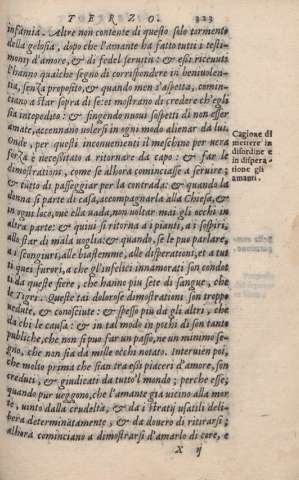 TERZO. 323
infamia. Altre non contente di questo solo tormento
della gelosia, dopo che l'amante ha fatto tutti i testi-
monij d'amore, & di fedel seruitu: & essi riceuuti
l'hanno qualche segno di corrispondere in beniuolen-
tia, senza proposito, & quando men s'aspetta, comin-
ciano a star sopra di se: et mostrano di credere ch'egli
sia intepedito: & fingendo nuoui sospetti di non esser
amate, accennano uolersi in ogni modo alienar da lui.
Onde, per questi inconuenienti il meschino per uera
forza è necessitato a ritornare da capo: & far le
dimostrationi, come se alhora cominciasse a seruire:
& tutto dì passeggiar per la contrada: & quando la
donna si parte di casa, accompagnarla alla Chiesa, &
in ogni loco, oue ella uada, non uoltar mai gli occhi in
altra parte: & quiui si ritorna a i pianti, a i sospiri,
allo star di mala uoglia: & quando, se le puo parlare,
a i scongiuri, alle biastemme, alle disperationi, et a tut
ti quei furori, a che gl'infelici innamorati son condot
ti da queste fiere, che hanno piu sete di sangue, che
le Tigri. Queste tai dolorose dimostrationi son troppo
uedute, & conosciute: & spesso più da gli altri, che
da chi le causa: & in tal modo in pochi dì son tanto
publiche, che non si puo far un passo, ne un minimo se-
gno, che non sia da mille occhi notato. Interuien poi,
che molto prima che sian tra essi piaceri d'amore, son
creduti, & giudicati da tutto'l mondo; perche esse,
quando pur ueggono, che l'amante gia uicino alla mor
te, uinto dalla crudeltà, & da i stratij usatili deli-
bera determinatamente, & da douero di ritirarsi;
alhora cominciano a dimostrarsi d'amarlo di core, e
X ij
Cagione di
mettere in
disordine e
in dispera-
tione gli
amanti.